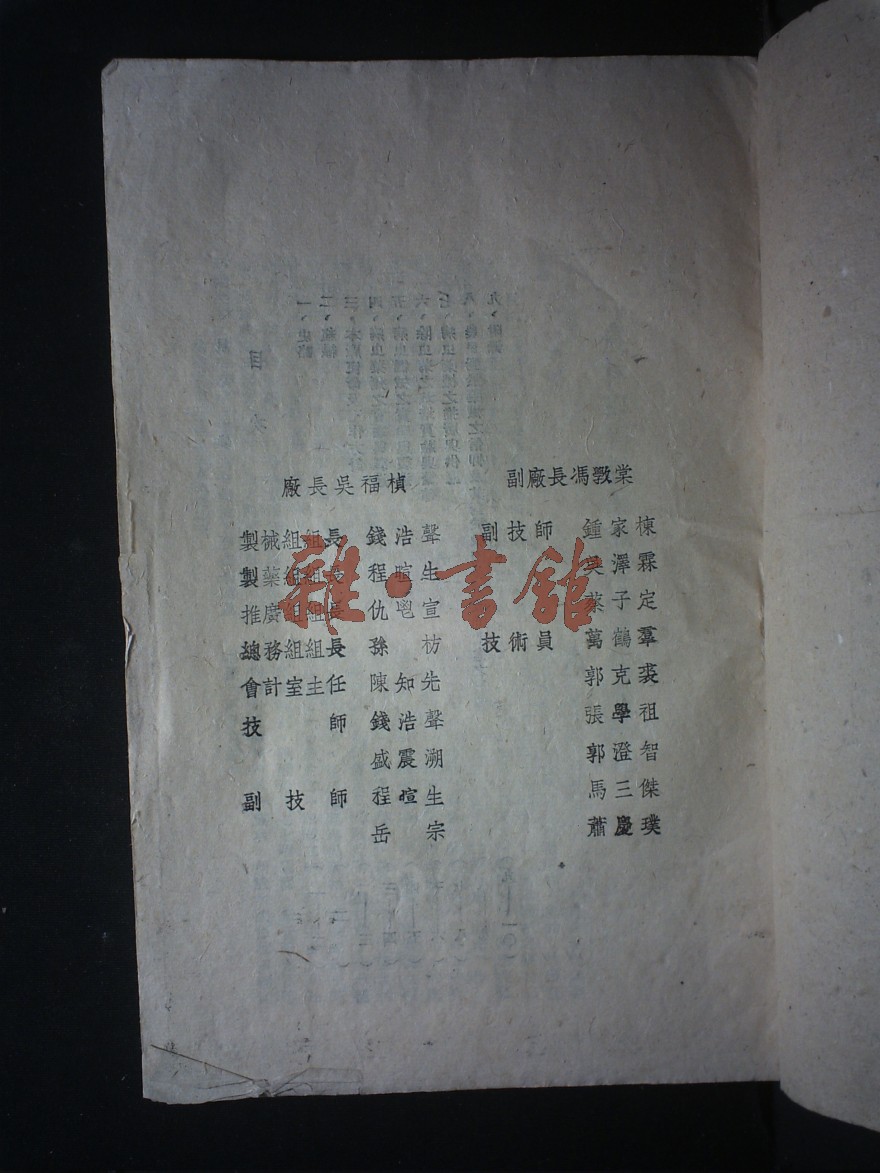 廠長吳福楨
製械組組長 錢浩聲
製藥組組長 程暄生
推廣組組長 仇 宣
總務組組長 孫 枋
會計室主任 陳知先
技 師 錢浩聲
盛震溯
副 技 師 程暄生
岳 宗
副廠長馮斅棠
副技師 鍾家棟
吳澤霖
蔡子定
技術員 萬鶴羣
郭克裘
張學祖
郭澄智
馬三傑
蕭慶璞
雜·書館